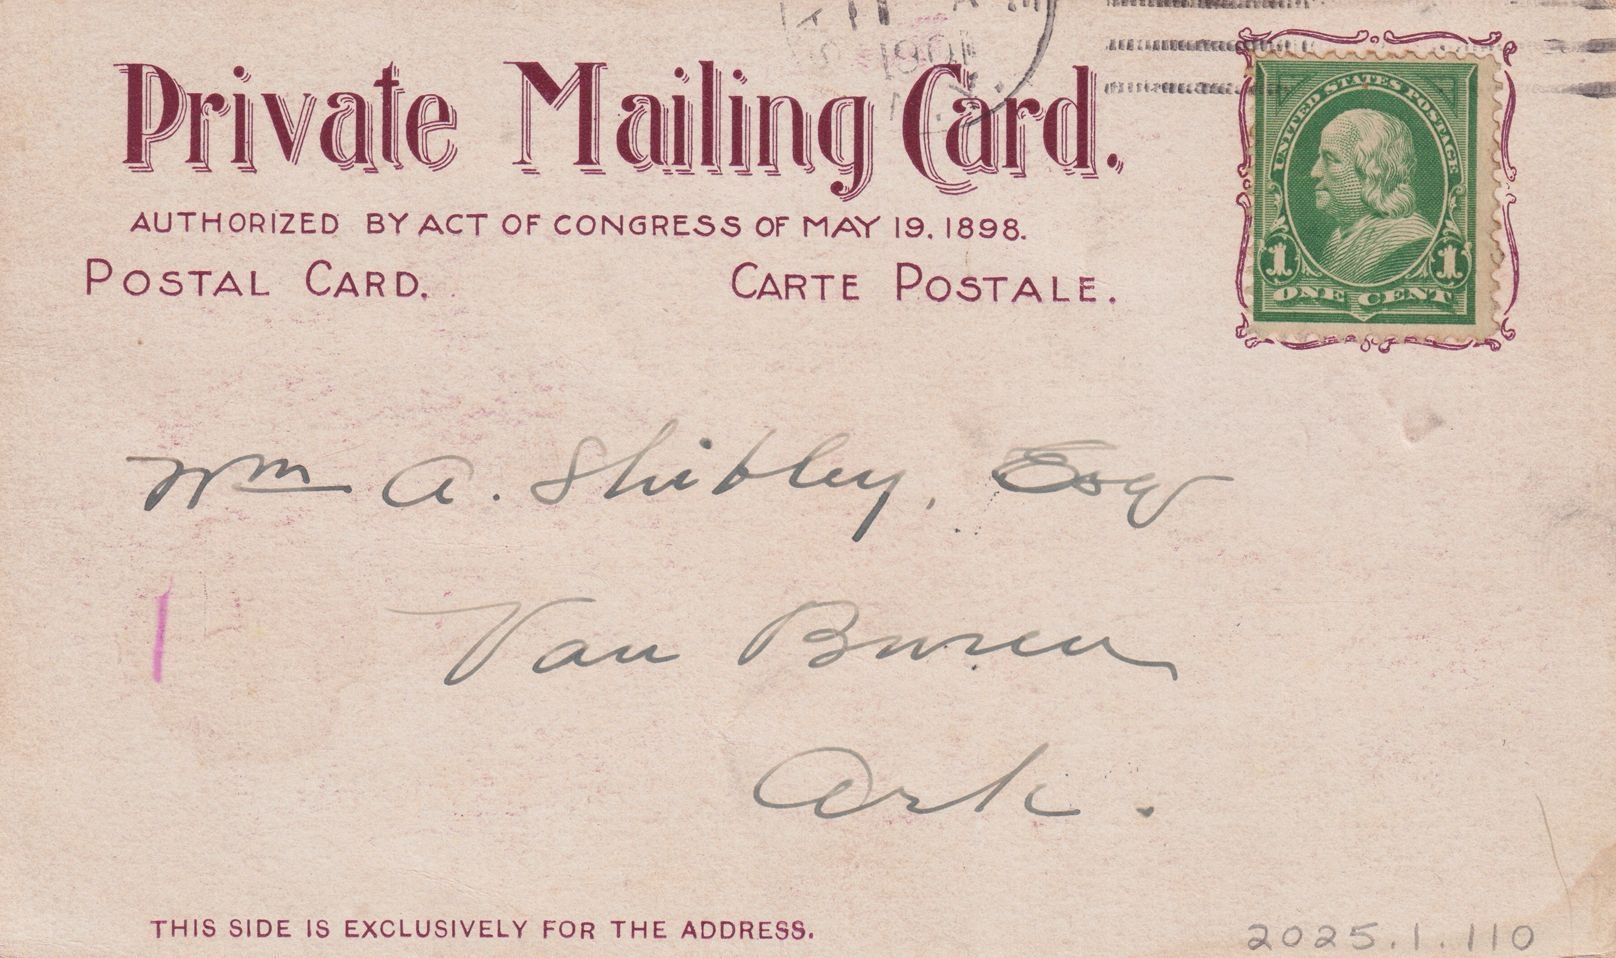 1901
Private Mailing Card.
AUTHORIZED BY ACT OF CONGRESS OF MAY 19, 1898.
POSTAL CARD. CARTE POSTALE.
UNITED STATES POSTAGE
1 1
ONE CENT
Wm A. Shibley, Esq
Van Buren
Ark.
THIS SIDE IS EXCLUSIVELY FOR THE ADDRESS.
2025.1.110